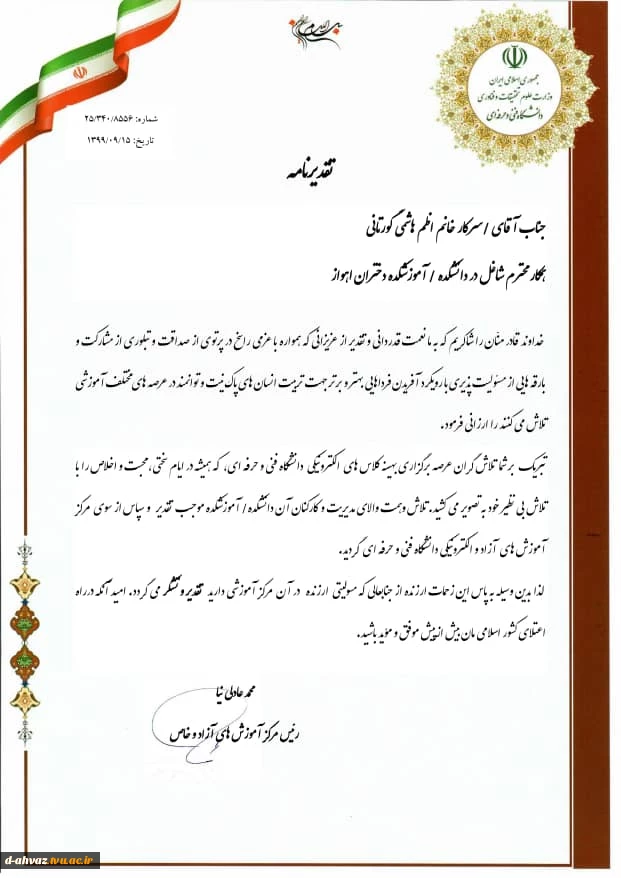 جمهوری اسلامی ایران
وزارت علوم تحقیقات و فناوری
دانشگاه فنی و حرفه ای
شماره: ۲۵/۳۴۰/۸۵۵۶
تاریخ: ۱۳۹۹/۰۹/۱۵
تقدیرنامه
جناب آقای / سرکار خانم اظم هاشمی گورتانی
همکار محترم شاغل در دانشکده / آموزشکده دختران اهواز
خداوند قادر منّان را شاکریم که به ما نعمت قدردانی و تقدیر از عزیزانی که همواره با عزمی راسخ در پرتوی از صداقت و تبلوری از مشارکت و
بارقه هایی از مسئولیت پذیری با رویکرد آفریدن فرداهایی بهتر و برتر جهت تربیت انسان های پاک نیت و توانمند در عرصه های مختلف آموزشی
تلاش می کنند را ارزانی فرمود.
تبریک بر شما تلاش گران عرصه برگزاری بهینه کلاس های الکترونیکی دانشگاه فنی و حرفه ای، که همیشه در ایام سختی، محبت و اخلاص را با
تلاش بی نظیر خود به تصویر می کشید. تلاش وهمت والای مدیریت و کارکنان آن دانشکده/ آموزشکده موجب تقدیر و سپاس از سوی مرکز
آموزش های آزاد و الکترونیکی دانشگاه فنی و حرفه ای گردید.
لذا بدین وسیله به پاس این زحمات ارزنده از جنابعالی که مسولیتی ارزنده در آن مرکز آموزشی دارید تقدیر و تشکر می گردد. امید آنکه در راه
اعتلای کشور اسلامی مان بیش از پیش موفق و موید باشید.
محمد عادلی نیا
رئیس مرکز آموزش های آزاد و خاص
d-ahvaz.tvu.ac.ir